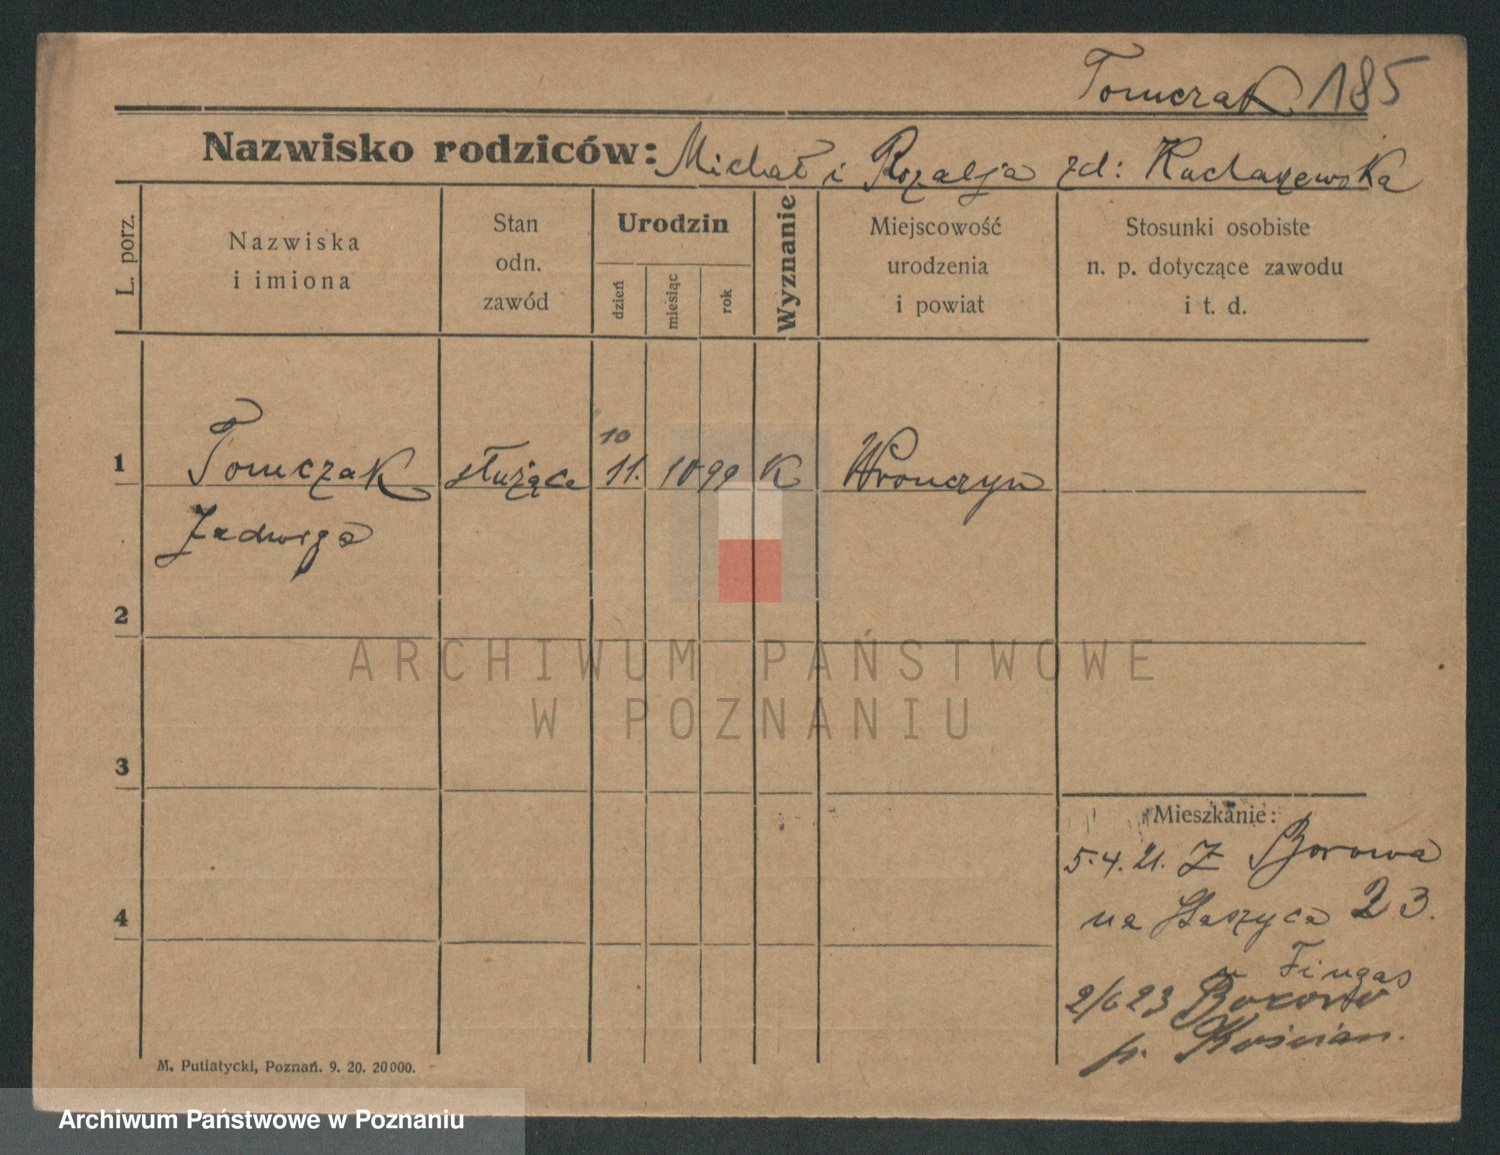 Tomczak 185
Nazwisko rodziców: Michał i Rozalja zd: Kuchaszewska
L. porz.
Nazwiska
i imiona
Stan
odn.
zawód
Urodzin
dzień
miesiąc
rok
Wyznanie
Miejscowość
urodzenia
i powiat
Stosunki osobiste
n. p. dotyczące zawodu
i t. d.
10
1 Tomczak służąca 11. 10 99 K Wronczyn
Jadwiga
2
ARCHIWUM PAŃSTWOWE
W POZNANIU
3
Mieszkanie:
5.4.21. Z Borowa
4
na Staszyca 23.
u Fingas
2/6 23 Borowo
p. Kościan.
M. Putiatycki, Poznań. 9. 20. 20000.
Archiwum Państwowe w Poznaniu